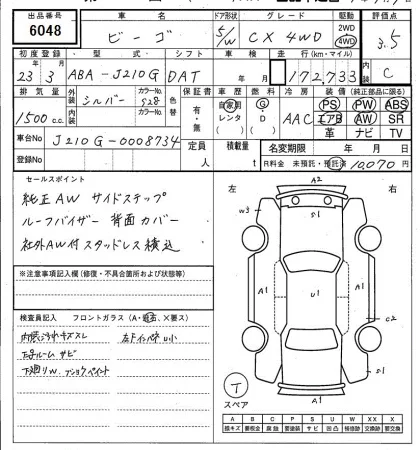 出品番号 車名 ドア形状 グレード 駆動 評価点
6048 ビーゴ 5/W CX 4WD 2WD 4WD 3.5
初度登録 型式 シフト 車検 走行(km・マイル) 内装
23年3月 ABA-J210G DAT 年 月 172,733 C
排気量 外装 シルバー カラーNo. S28 色替 保証書 車歴 燃料 冷房 装備(純正部品に限る)
1500cc 内装 カラーNo. 有・無 自家用 レンタ G・D AAC PS PW ABS
エアB AW SR
革 ナビ TV
車台No J210G-0008734 定員 人 積載量 t 名変期限 年 月 日
登録No R料金 未預託・預託済 10,070円
セールスポイント
純正AW サイドステップ
ルーフバイザー 背面カバー
社外AW付スタッドレス積込
※注意事項記入欄(修復・不具合箇所および状態等)
検査員記入 フロントガラス(A・飛石、×要ス)
下廻りW.
左 右
A2
W3
S1
A1
U1
A1
C2
S1
A1
T
スペア
A B C P S U W XX X
線キズ 要板金 腐蝕 要塗装 サビ 凹凸 補修跡 交換跡 要交換